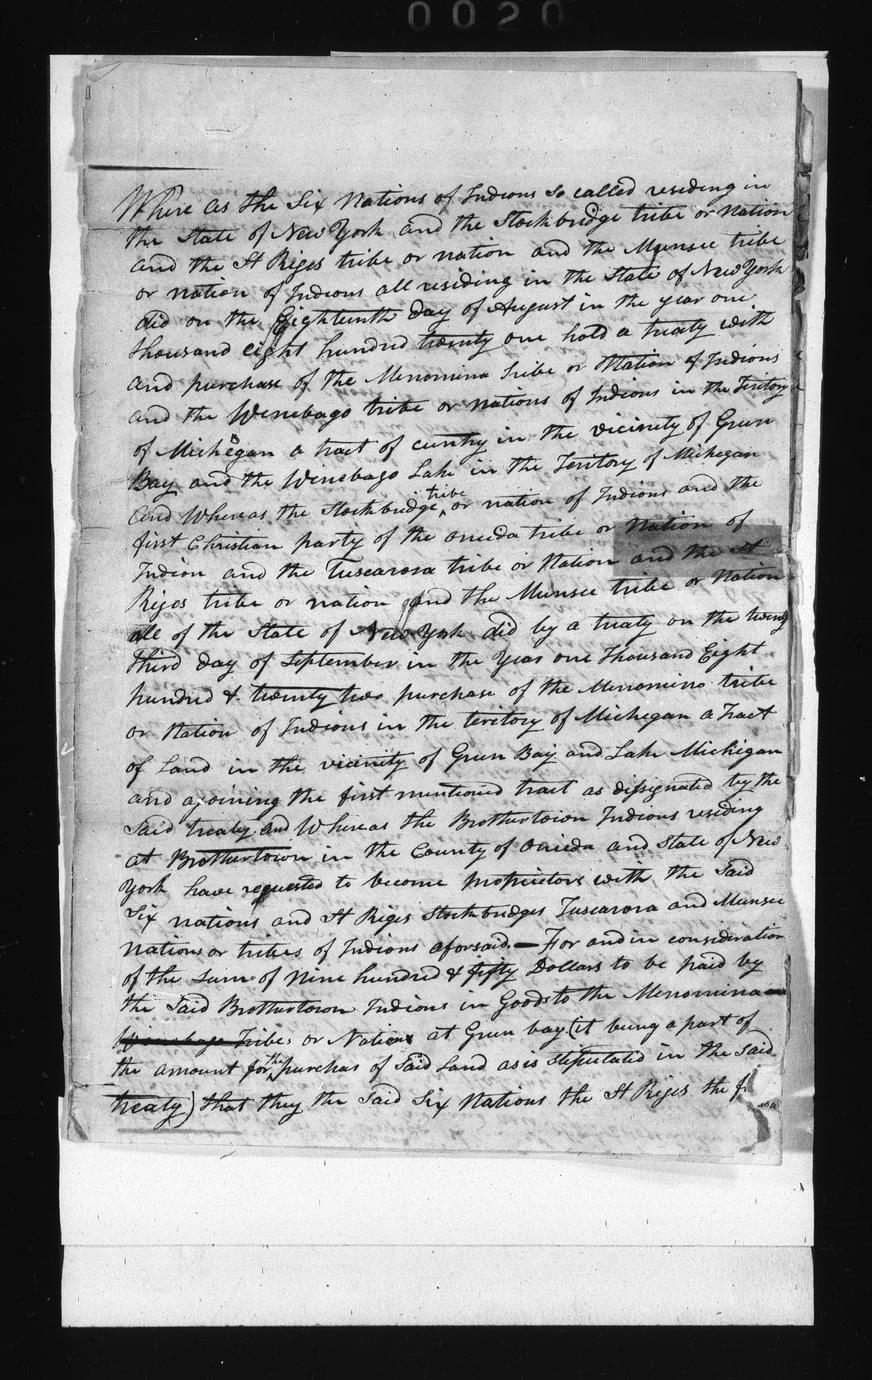 0020
Where as the Six Nations of Indions so called residing in
the State of New York and the Stockbridge tribe or Nation
and the St Regis tribe or nation and the Munsee tribe
or nation of Indions all residing in the State of New York
did on the Eighteenth day of August in the year one
thousand eight hundred twenty one hold a treaty with
and purchase of the Menomina Tribe or Nation of Indions
and the Winebago tribe or nations of Indions in the Teritory
of Michegan a tract of cuntry in the vicinity of Green
Bay and the Winebago Lake in the Teritory of Michegan
And Whereas the Stockbridge tribe or nation of Indions and the
first Christian party of the Oneida tribe or Nation of
Indion and the Tuscarora tribe or Nation and the St
Riges tribe or nation and the Munsee tribe or Nation
all of the State of New York did by a treaty on the twenty
third day of September in the Year one Thousand Eight
hundred & twenty two purchase of the Menomino tribe
or Nation of Indions in the teritory of Michegan a Tract
of Land in the vicinity of Green Bay and Lake Michigan
and ajoining the first mentioned tract as dissignated by the
Said treaty and Whereas the Brothertown Indions residing
at Brothertown in the County of Oneida and State of New
York have requested to become proprietors with the Said
Six nations and St Riges Stockbridges Tuscarora and Munsee
Nations or tribes of Indions aforsaid — For and in consideration
of the Sum of Nine hundred & fifty Dollars to be paid by
the Said Brothertown Indions in Goods to the Menomina
Winebago Tribes or Nations at Green bay (it being a part of
the amount for the purchas of Said Land as is steputated in the Said
treaty) that they the Said Six Nations the St Riges the